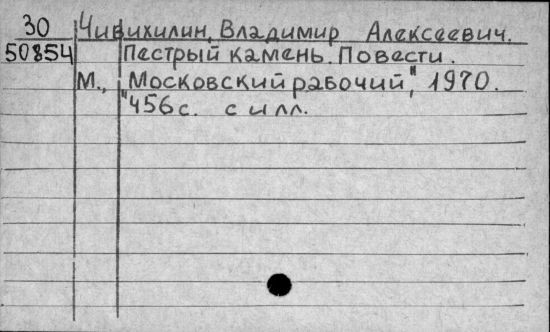 30 Чивихилин, Владимир Алексеевич.
50854 Пестрый камень. Повести.
М., "Московский рабочий", 1970.
456 с. с илл.